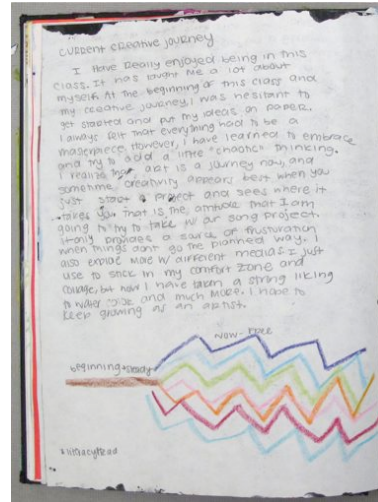 CURRENT CREATIVE JOURNEY
I Have Really enjoyed being in this
class. It has taught me a lot about
myself. At the beginning of this class and
my creative journey, I was hesitant to
get started and put my ideas on paper.
I always felt that everything had to be a
masterpiece. However, I have learned to embrace
and try to add a little "chaotic" thinking.
I realize that art is a journey now, and
sometime creativity appears best when you
just start a project and sees where it
takes you. That is the attitude that I am
going to try to take w/ our song project.
It only provides a source of frusturation
when things dont go the planned way. I
also explore more w/ different medias. I just
use to stick in my comfort zone and
collage, but now I have taken a strong liking
to water color and much more. I hope to
keep growing as an artist.
NOW - FREE
beginning + steady